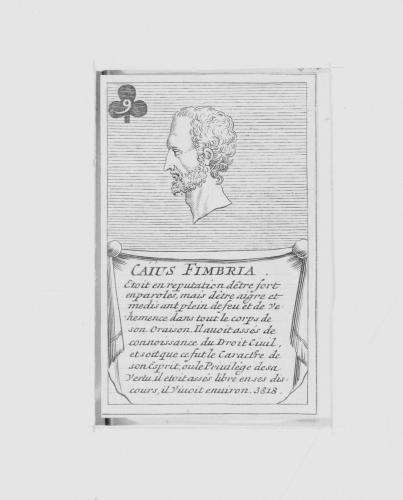 9
CAÏUS FIMBRIA.
Etoit en reputation d'être fort
en paroles, mais d'être aigre et
medisant, plein de feu et de Ve
hemence dans tout le corps de
son Oraison. Il avoit assés de
connoissance du Droit Civil,
et soit que ce fut le Caractere de
son Esprit, ou le Privilége de sa
Vertu, il etoit assés libre en ses dis-
cours, il Vivoit environ. 3818.